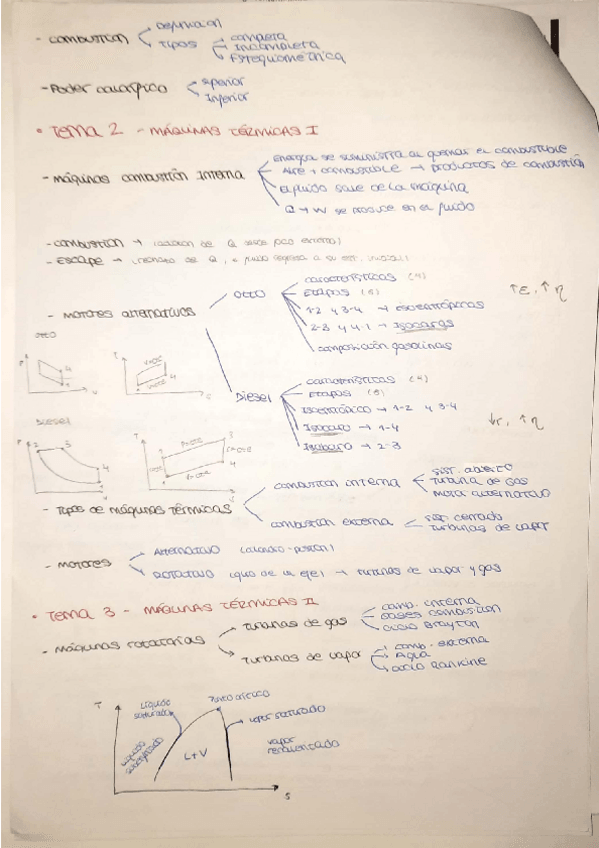 - combustión
Definición
Tipos
completa
Incompleta
Estequiométrica
- Poder calorífico
superior
Inferior
• Tema 2 - MÁQUINAS TÉRMICAS I
- máquinas combustión Interna
Energía se suministra al quemar el combustible
Aire + combustible → productos de combustión
El fluido sale de la máquina
Q → W se produce en el fluido
- combustión →
- Escape →
- motores alternativos
Otto
características (4)
Etapas (6)
1-2 y 3-4 → isoentrópicas
2-3 y 4-1 → Isocoras
composición gasolinas
↑ε, ↑η
Diesel
características (4)
Etapas (6)
Isoentrópico → 1-2 y 3-4
Isocoro → 1-4
Isobaro → 2-3
↓r, ↑η
OTTO
P
V
T
S
V=cte
V=cte
4
DIESEL
P
2
3
4
V
T
P=cte
3
4
S
- Tipos de máquinas térmicas
combustión interna
sist. abierto
Turbina de gas
Motor alternativo
combustión externa
sist. cerrado
Turbinas de vapor
- motores
Alternativo (cilindro-pistón)
Rotativo (giro de la eje) → turbinas de vapor y gas
• Tema 3 - MÁQUINAS TÉRMICAS II
- máquinas rotatorias
Turbinas de gas
comb. interna
Gases combustión
ciclo Brayton
Turbinas de vapor
comb. externa
Agua
ciclo Rankine
T
Líquido saturado
Punto crítico
vapor saturado
Líquido subenfriado
L+V
vapor recalentado
S